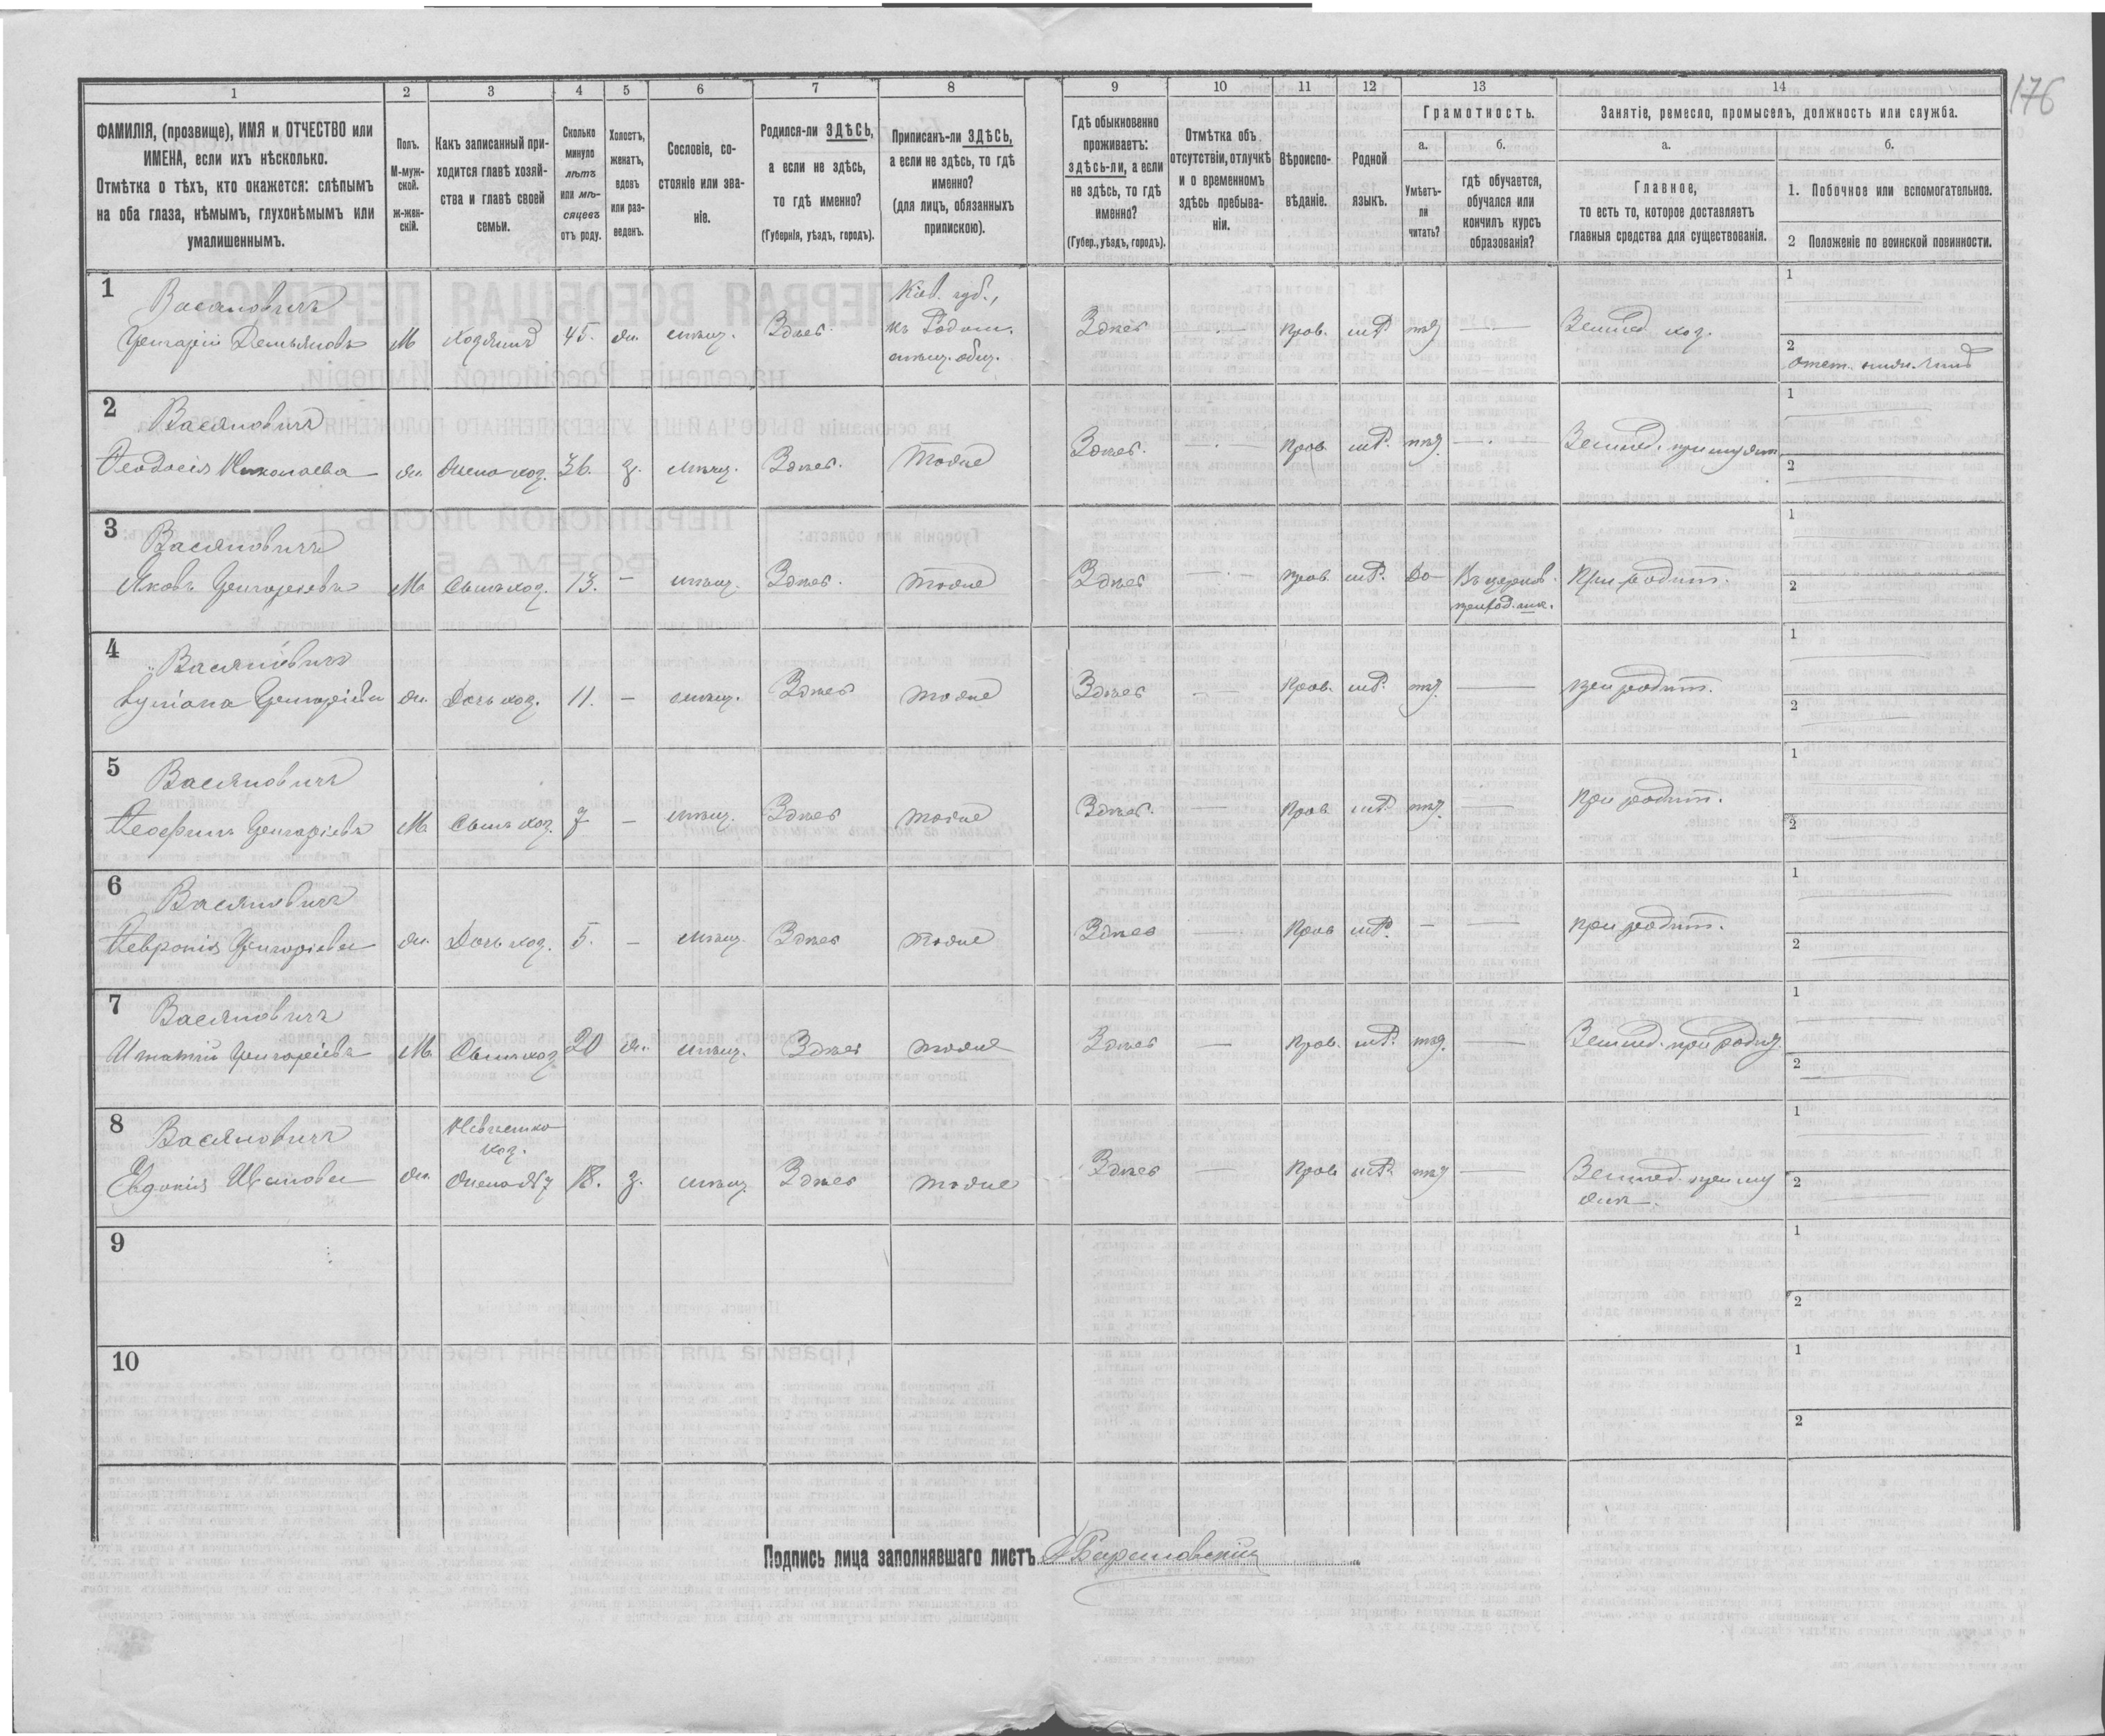 176
1 2 3 4 5 6 7 8 9 10 11 12 13 14
ФАМИЛІЯ, (прозвище), ИМЯ и ОТЧЕСТВО или
ИМЕНА, если ихъ нѣсколько.
Отмѣтка о тѣхъ, кто окажется: слѣпымъ
на оба глаза, нѣмымъ, глухонѣмымъ или
умалишеннымъ.
Полъ.
М-муж-
ской.
ж-жен-
скій.
Какъ записанный при-
ходится главѣ хозяй-
ства и главѣ своей
семьи.
Сколько
минуло
лѣтъ
или мѣ-
сяцевъ
отъ роду.
Холостъ,
женатъ,
вдовъ
или раз-
веденъ.
Сословіе, со-
стояніе или зва-
ніе.
Родился-ли ЗДѢСЬ,
а если не здѣсь,
то гдѣ именно?
(Губернія, уѣздъ, городъ).
Приписанъ-ли ЗДѢСЬ,
а если не здѣсь, то гдѣ
именно?
(для лицъ, обязанныхъ
припискою).
Гдѣ обыкновенно
проживаетъ:
здѣсь-ли, а если
не здѣсь, то гдѣ
именно?
(Губер., уѣздъ, городъ).
Отмѣтка объ
отсутствіи, отлучкѣ
и о временномъ
здѣсь пребыва-
ніи.
Вѣроиспо-
вѣданіе.
Родной
языкъ.
Грамотность.
а.
Умѣетъ-
ли
читать?
б.
гдѣ обучается,
обучался или
кончилъ курсъ
образованія?
Занятіе, ремесло, промыселъ, должность или служба.
а.
Главное,
то есть то, которое доставляетъ
главныя средства для существованія.
б.
1. Побочное или вспомогательное.
2 Положеніе по воинской повинности.
1
Васяновичъ
Григорій Демьяновъ М Хозяинъ 45. ж. мѣщ. Здѣсь.
Кіев. губ.,
мѣщ. общ.
Здѣсь Прав. Землед. хоз.
1
2
2
Васяновичъ
Феодосія Николаева ж. Жена хоз. 36. з. мѣщ. Здѣсь. Тоже Здѣсь. Прав. Землед.
1
2
3
Васяновичъ
Яковъ Григорьевъ М Сынъ хоз. 13. – мѣщ. Здѣсь. тоже Здѣсь Прав. Да Въ церков.
приход. шк.
При родит.
1
2
4
Васяновичъ
Григоріева ж. Дочь хоз. 11. – мѣщ. Здѣсь тоже Здѣсь Прав. при родит.
1
2
5
Васяновичъ
Григоріевъ М Сынъ хоз. 7 – мѣщ. Здѣсь тоже Здѣсь. Прав при родит.
1
2
6
Васяновичъ
Февронія Григоріева ж. Дочь хоз. 5. – мѣщ. Здѣсь тоже Здѣсь Прав – – при родит.
1
2
7
Васяновичъ
Игнатій Григоріевъ М. Сынъ хоз 20 ж. мѣщ. Здѣсь тоже Здѣсь Прав. Землед. при родит.
1
2
8
Васяновичъ
Евдокія Иванова ж.
Невѣстка
хоз.
Жена №7 18. з. мѣщ. Здѣсь тоже Здѣсь Прав Землед. при му
жѣ.
1
2
9
1
2
10
1
2
Подпись лица заполнявшаго листъ